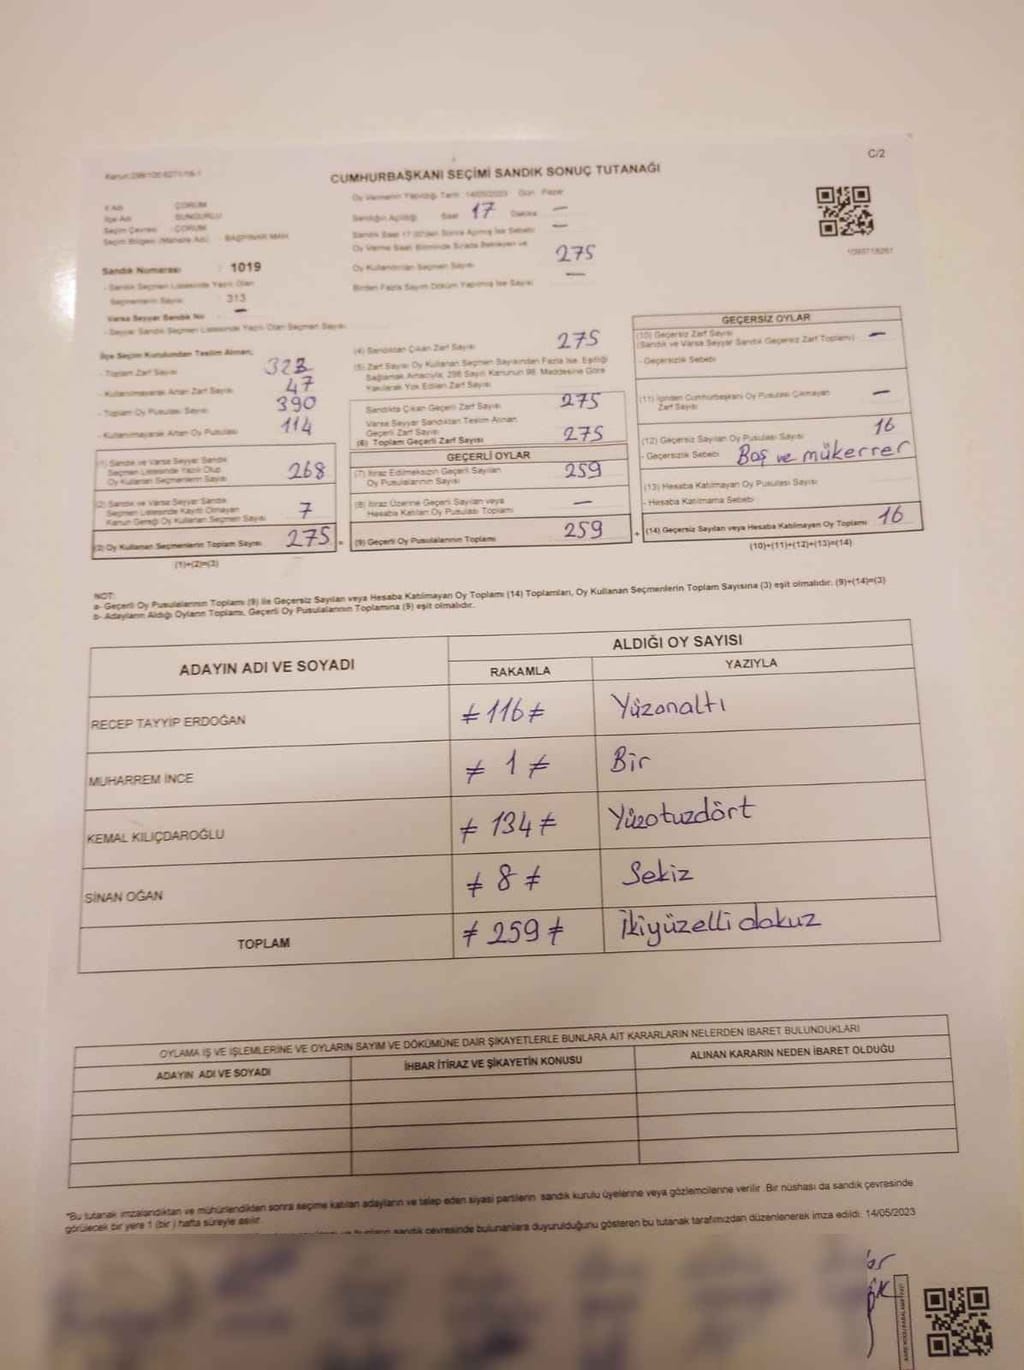 C/2
CUMHURBAŞKANI SEÇİMİ SANDIK SONUÇ TUTANAĞI
Oy Vermenin Yapıldığı Tarih 14/05/2023 Gün Pazar
İli Adı ÇORUM
İlçe Adı SUNGURLU
Seçim Çevresi ÇORUM
Seçim Bölgesi (Mahalle Adı)
Sandığın Açıldığı Saat 17 Dakika —
Sandık Saat 17:00'den Sonra Açılmış İse Sebebi —
Oy Verme Saati Bitiminde Sırada Bekleyen ve
Oy Kullandırılan Seçmen Sayısı 275
Birden Fazla Sayım Döküm Yapılmış İse Sayısı —
Sandık Numarası : 1019
- Sandık Seçmen Listesinde Yazılı Olan
Seçmenlerin Sayısı 313
Varsa Seyyar Sandık No —
- Seyyar Sandık Seçmen Listesinde Yazılı Olan Seçmen Sayısı
İlçe Seçim Kurulundan Teslim Alınan;
- Toplam Zarf Sayısı 323
- Kullanılmayarak Artan Zarf Sayısı 47
- Toplam Oy Pusulası Sayısı 390
- Kullanılmayarak Artan Oy Pusulası 114
(1) Sandık ve Varsa Seyyar Sandık
Seçmen Listesinde Yazılı Olup
Oy Kullanan Seçmenlerin Sayısı 268
(2) Sandık ve Varsa Seyyar Sandık
Seçmen Listesinde Kayıtlı Olmayan
Kanun Gereği Oy Kullanan Seçmen Sayısı 7
(3) Oy Kullanan Seçmenlerin Toplam Sayısı 275 =
(1)+(2)=(3)
(4) Sandıktan Çıkan Zarf Sayısı 275
(5) Zarf Sayısı Oy Kullanan Seçmen Sayısından Fazla İse, Eşitliği
Sağlamak Amacıyla, 298 Sayılı Kanunun 98. Maddesine Göre
Yakılarak Yok Edilen Zarf Sayısı
Sandıkta Çıkan Geçerli Zarf Sayısı 275
Varsa Seyyar Sandıktan Teslim Alınan
Geçerli Zarf Sayısı
(6) Toplam Geçerli Zarf Sayısı 275
GEÇERLİ OYLAR
(7) İtiraz Edilmeksizin Geçerli Sayılan
Oy Pusulalarının Sayısı 259
(8) İtiraz Üzerine Geçerli Sayılan veya
Hesaba Katılan Oy Pusulası Toplamı —
(9) Geçerli Oy Pusulalarının Toplamı 259 +
GEÇERSİZ OYLAR
(10) Geçersiz Zarf Sayısı —
(Sandık ve Varsa Seyyar Sandık Geçersiz Zarf Toplamı)
- Geçersizlik Sebebi
(11) İçinden Cumhurbaşkanı Oy Pusulası Çıkmayan
Zarf Sayısı —
(12) Geçersiz Sayılan Oy Pusulası Sayısı 16
- Geçersizlik Sebebi Boş ve mükerrer
(13) Hesaba Katılmayan Oy Pusulası Sayısı
- Hesaba Katılmama Sebebi
(14) Geçersiz Sayılan veya Hesaba Katılmayan Oy Toplamı 16
(10)+(11)+(12)+(13)=(14)
NOT:
a- Geçerli Oy Pusulalarının Toplamı (9) ile Geçersiz Sayılan veya Hesaba Katılmayan Oy Toplamı (14) Toplamları, Oy Kullanan Seçmenlerin Toplam Sayısına (3) eşit olmalıdır. (9)+(14)=(3)
b- Adayların Aldığı Oyların Toplamı, Geçerli Oy Pusulalarının Toplamına (9) eşit olmalıdır.
ADAYIN ADI VE SOYADI
ALDIĞI OY SAYISI
RAKAMLA YAZIYLA
RECEP TAYYİP ERDOĞAN ≠116≠ Yüzonaltı
MUHARREM İNCE ≠ 1 ≠ Bir
KEMAL KILIÇDAROĞLU ≠ 134 ≠ Yüzotuzdört
SİNAN OĞAN ≠ 8 ≠ Sekiz
TOPLAM ≠ 259 ≠ İkiyüzelli dokuz
OYLAMA İŞ VE İŞLEMLERİNE VE OYLARIN SAYIM VE DÖKÜMÜNE DAİR ŞİKAYETLERLE BUNLARA AİT KARARLARIN NELERDEN İBARET BULUNDUKLARI
ADAYIN ADI VE SOYADI İHBAR İTİRAZ VE ŞİKAYETİN KONUSU ALINAN KARARIN NEDEN İBARET OLDUĞU
"Bu tutanak imzalandıktan ve mühürlendikten sonra seçime katılan adayların ve talep eden siyasi partilerin sandık kurulu üyelerine veya gözlemcilerine verilir. Bir nüshası da sandık çevresinde
görülecek bir yere 1 (bir) hafta süreyle asılır.
sandık çevresinde bulunanlara duyurulduğunu gösteren bu tutanak tarafımızdan düzenlenerek imza edildi. 14/05/2023